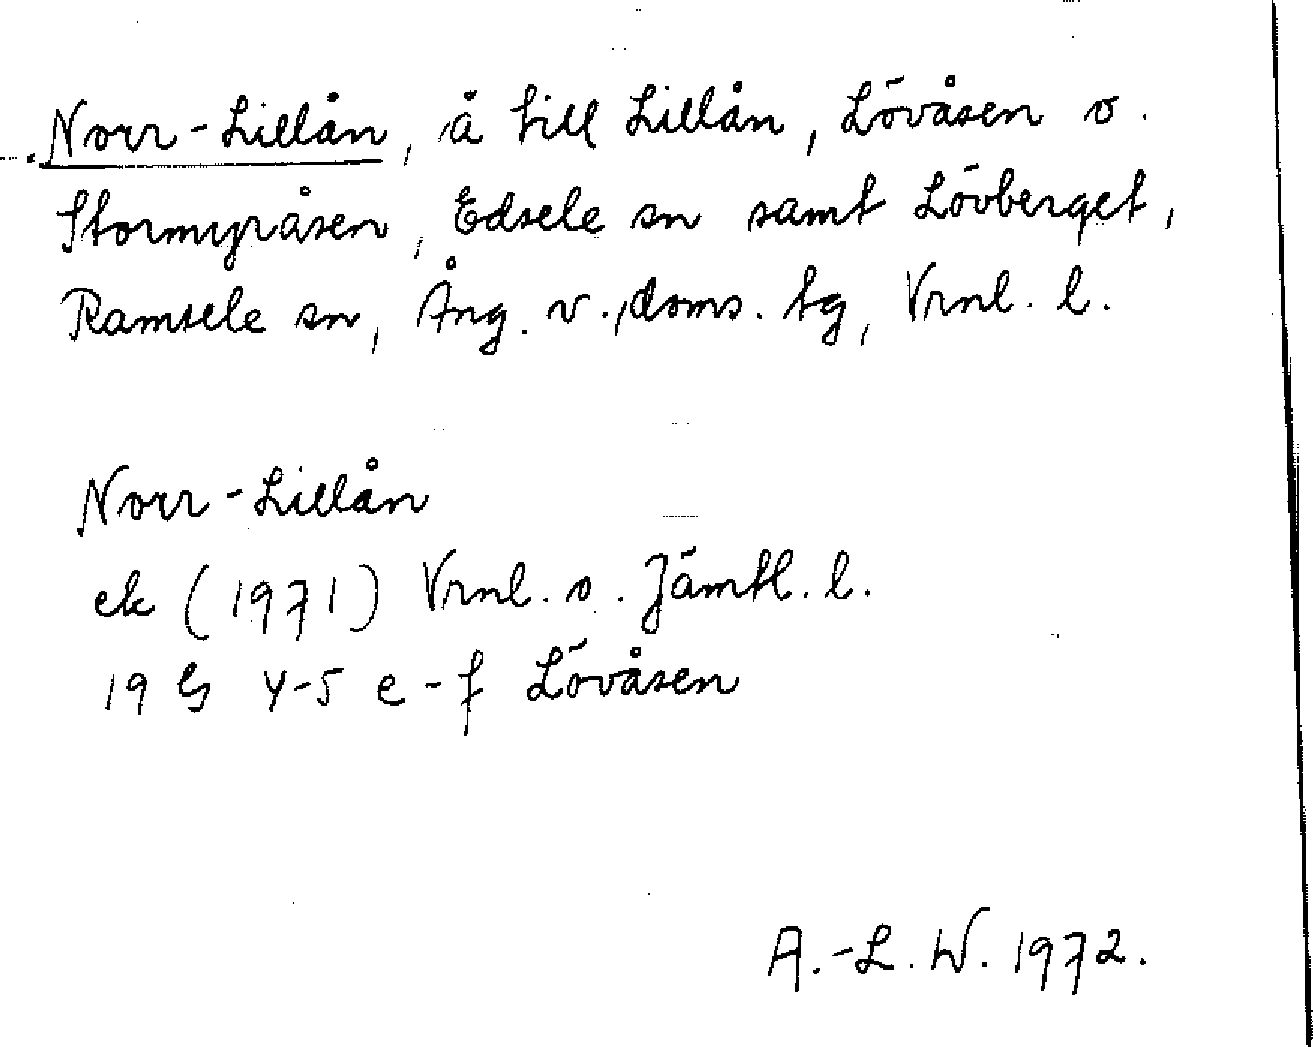 Norr-Lillån, å till Lillån, Lövåsen o.
Stormyråsen, Edsele sn samt Lövberget,
Ramsele sn, Ång. v., doms. tg, Vrnl. l.
Norr-Lillån
ek (1971) Vrnl. o. Jämtl. l.
19 G 4-5 e-f Lövåsen
A.-L. W. 1972.